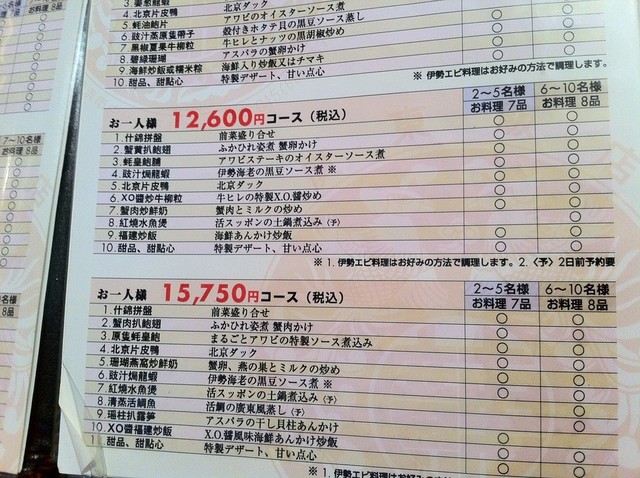 3.
4.北京片皮鴨 北京ダック
5.蚝油鮑片 アワビのオイスターソース煮
6.豉汁蒸原隻帶子 殻付きホタテ貝の黒豆ソース蒸し ○ ○
7.黒椒夏果牛柳粒 牛ヒレとナッツの黒胡椒炒め ○ ○
8.碧綠珊瑚 アスパラの蟹卵かけ ○
9.海鮮炒飯或糯米粽 海鮮入り炒飯又はチマキ ○ ○
10.甜品、甜點心 特製デザート、甘い点心 ○ ○
※伊勢エビ料理はお好みの方法で調理します。
お一人様 12,600円コース（税込） 2〜5名様 お料理 7品 6〜10名様 お料理 8品
1.什錦拼盤 前菜盛り合せ ○ ○
2.蟹黄扒鮑翅 ふかひれ姿煮 蟹卵かけ ○ ○
3.蚝皇鮑脯 アワビステーキのオイスターソース煮 ○ ○
4.豉汁焗龍蝦 伊勢海老の黒豆ソース煮 ※ ○ ○
5.北京片皮鴨 北京ダック ○ ○
6.XO醬炒牛柳粒 牛ヒレの特製X.O.醤炒め ○ ○
7.蟹肉炒鮮奶 蟹肉とミルクの炒め
8.紅燒水魚煲 活スッポンの土鍋煮込み〈予〉
9.福建炒飯 海鮮あんかけ炒飯 ○ ○
10.甜品、甜點心 特製デザート、甘い点心 ○ ○
※ 1. 伊勢エビ料理はお好みの方法で調理します。2.〈予〉2日前予約要
お一人様 15,750円コース（税込） 2〜5名様 お料理 7品 6〜10名様 お料理 8品
1.什錦拼盤 前菜盛り合せ ○ ○
2.蟹肉扒鮑翅 ふかひれ姿煮 蟹肉かけ ○ ○
3.原隻蚝皇鮑 まるごとアワビの特製ソース煮込み ○ ○
4.北京片皮鴨 北京ダック ○ ○
5.珊瑚燕窩炒鮮奶 蟹卵、燕の巣とミルクの炒め ○ ○
6.豉汁焗龍蝦 伊勢海老の黒豆ソース煮 ※ ○ ○
7.紅燒水魚煲 活スッポンの土鍋煮込み〈予〉
8.清蒸活鯛魚 活鯛の廣東風蒸し〈予〉
9.瑶柱扒露笋 アスパラの干し貝柱あんかけ
10.XO醬福建炒飯 X.O.醤風味海鮮あんかけ炒飯 ○ ○
11.甜品、甜點心 特製デザート、甘い点心 ○ ○
※ 1. 伊勢エビ料理はお好み
7〜10名様
8品